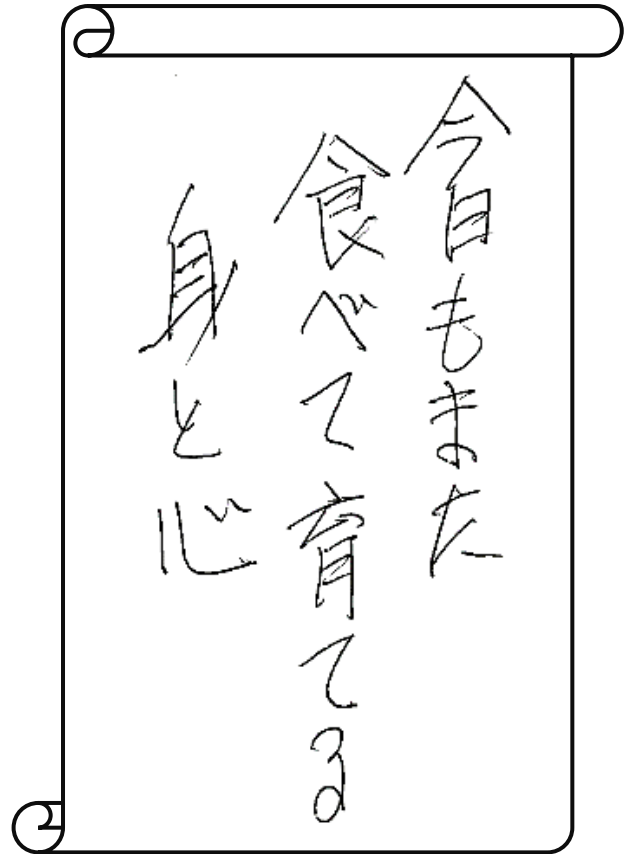 今日もまた
食べて育てる
身と心